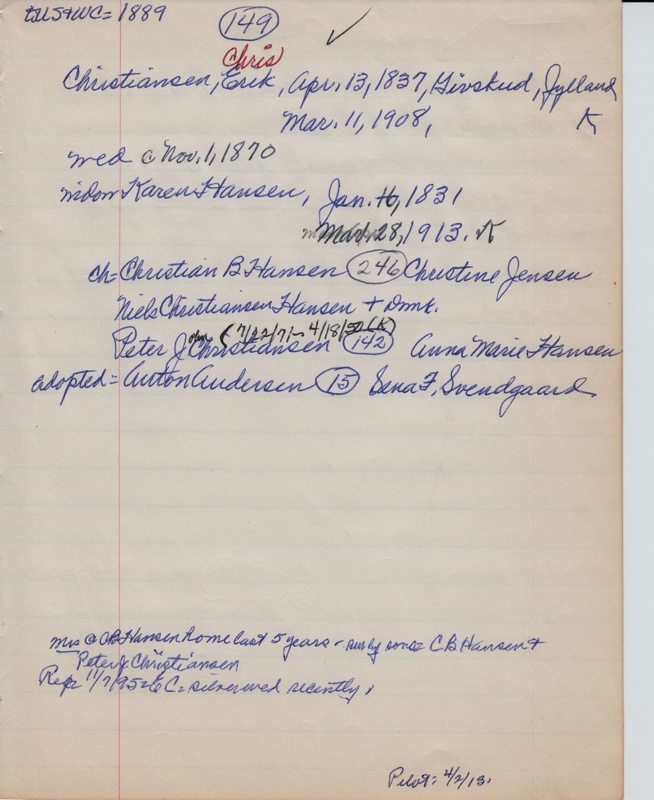 to US & WC = 1889
149
Chris
Christiansen, Erik, Apr. 13, 1837, Givskud, Jylland
Mar. 11, 1908, K
wed @ Nov. 1, 1870
widow Karen Hansen, Jan. 16, 1831
Mar. 28, 1913. K
ch = Christian B Hansen 246 Christine Jensen
Niels Christiansen Hansen + Dmk.
(7/22/71 - 4/18/52 (K)
Peter John Christiansen 142 Anna Marie Hansen
adopted = Anton Andersen 15 Sena F. Svendgaard
Mrs @ CB Hansen home last 5 years - surv by sons = CB Hansen +
Peter J Christiansen
Rep: 11/7/95 = E C = silverwed recently.
Pilot: 4/2/13.